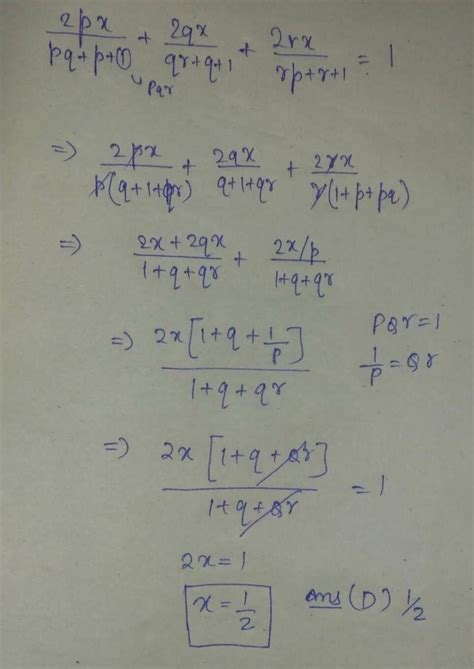 2px/(pq+p+①) + 2qx/(qr+q+1) + 2rx/(rp+r+1) = 1
↳ pqr
⇒ 2px/(p(q+1+qr)) + 2qx/(q+1+qr) + 2rx/(r(1+p+pq))
⇒ (2x+2qx)/(1+q+qr) + (2x/p)/(1+q+qr)
⇒ 2x[1+q+1/p]/(1+q+qr)
pqr=1
1/p = qr
⇒ 2x[1+q+qr]/(1+q+qr) = 1
2x=1
x=1/2
ans (D) 1/2